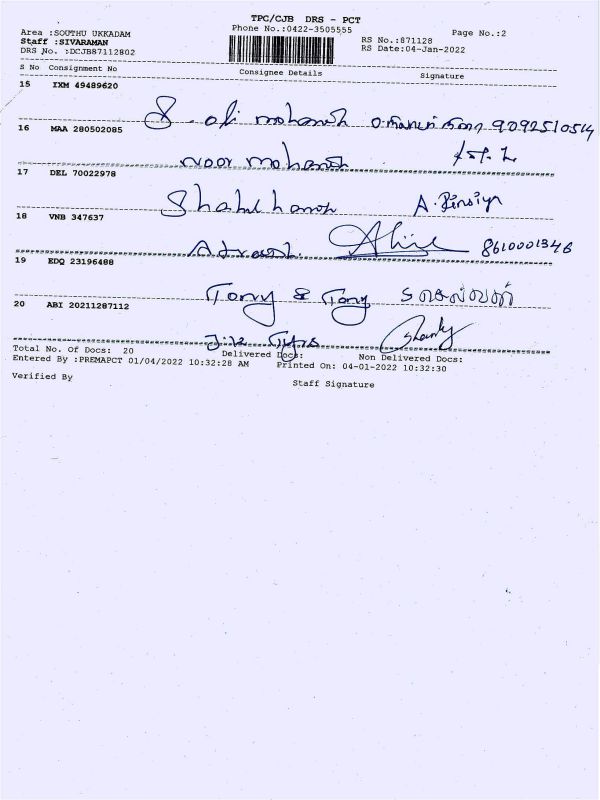 TPC/CJB DRS - PCT
Area :SOUTHU UKKADAM
Phone No.:0422-3505555
Page No.:2
Staff :SIVARAMAN
RS No.:871128
DRS No. :DCJB87112802
RS Date:04-Jan-2022
S No Consignment No
Consignee Details
Signature
15 IXM 49489620
S. ali mohamed 9092510514
16 MAA 280502085
noor mohamed
17 DEL 70022978
Shahul hameed A.
18 VNB 347637
8610001346
19 EDQ 23196488
Tony & Tony
20 ABI 20211287112
Total No. Of Docs: 20
Delivered Docs:
Non Delivered Docs:
Entered By :PREMAPCT 01/04/2022 10:32:28 AM
Printed On: 04-01-2022 10:32:30
Verified By
Staff Signature